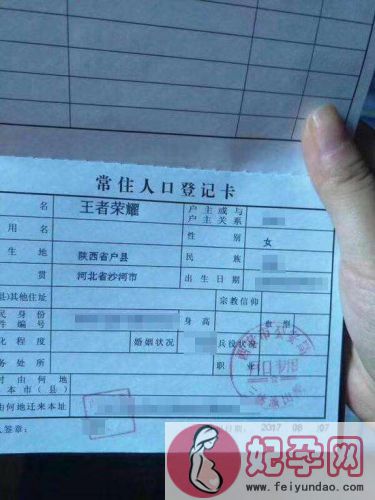 常住人口登记卡
名 王者荣耀 户主或与
户主关系
用名 性别 女
生地 陕西省户县 民族
贯 河北省沙河市 出生日期
县)其他住址 宗教信仰
民身份
件编号 身高 血型
化程度 婚姻状况 兵役状况
务处所 职业
时由何地
本市(县)
由何地迁来本址
人签章: 2017 08 07
妃孕网
www.feiyundao.com